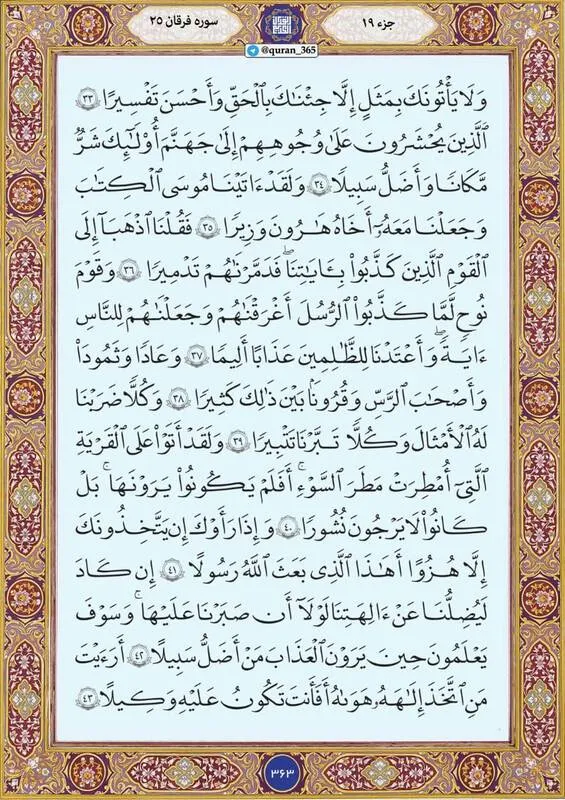 جزء ۱۹
سوره فرقان ۲۵
@quran_365
وَلَا يَأْتُونَكَ بِمَثَلٍ إِلَّا جِئْنَٰكَ بِٱلْحَقِّ وَأَحْسَنَ تَفْسِيرًا ۳۳
ٱلَّذِينَ يُحْشَرُونَ عَلَىٰ وُجُوهِهِمْ إِلَىٰ جَهَنَّمَ أُو۟لَٰٓئِكَ شَرٌّ
مَّكَانًا وَأَضَلُّ سَبِيلًا ۳۴ وَلَقَدْ ءَاتَيْنَا مُوسَى ٱلْكِتَٰبَ
وَجَعَلْنَا مَعَهُۥٓ أَخَاهُ هَٰرُونَ وَزِيرًا ۳۵ فَقُلْنَا ٱذْهَبَآ إِلَى
ٱلْقَوْمِ ٱلَّذِينَ كَذَّبُوا۟ بِـَٔايَٰتِنَا ۖ فَدَمَّرْنَٰهُمْ تَدْمِيرًا ۳۶ وَقَوْمَ
نُوحٍ لَّمَّا كَذَّبُوا۟ ٱلرُّسُلَ أَغْرَقْنَٰهُمْ وَجَعَلْنَٰهُمْ لِلنَّاسِ
ءَايَةً ۖ وَأَعْتَدْنَا لِلظَّٰلِمِينَ عَذَابًا أَلِيمًا ۳۷ وَعَادًا وَثَمُودَا۟
وَأَصْحَٰبَ ٱلرَّسِّ وَقُرُونًۢا بَيْنَ ذَٰلِكَ كَثِيرًا ۳۸ وَكُلًّا ضَرَبْنَا
لَهُ ٱلْأَمْثَٰلَ وَكُلًّا تَبَّرْنَا تَتْبِيرًا ۳۹ وَلَقَدْ أَتَوْا۟ عَلَى ٱلْقَرْيَةِ
ٱلَّتِىٓ أُمْطِرَتْ مَطَرَ ٱلسَّوْءِ ۚ أَفَلَمْ يَكُونُوا۟ يَرَوْنَهَا ۚ بَلْ
كَانُوا۟ لَا يَرْجُونَ نُشُورًا ۴۰ وَإِذَا رَأَوْكَ إِن يَتَّخِذُونَكَ
إِلَّا هُزُوًا أَهَٰذَا ٱلَّذِى بَعَثَ ٱللَّهُ رَسُولًا ۴۱ إِن كَادَ
لَيُضِلُّنَا عَنْ ءَالِهَتِنَا لَوْلَآ أَن صَبَرْنَا عَلَيْهَا ۚ وَسَوْفَ
يَعْلَمُونَ حِينَ يَرَوْنَ ٱلْعَذَابَ مَنْ أَضَلُّ سَبِيلًا ۴۲ أَرَءَيْتَ
مَنِ ٱتَّخَذَ إِلَٰهَهُۥ هَوَىٰهُ أَفَأَنتَ تَكُونُ عَلَيْهِ وَكِيلًا ۴۳
۳۶۳